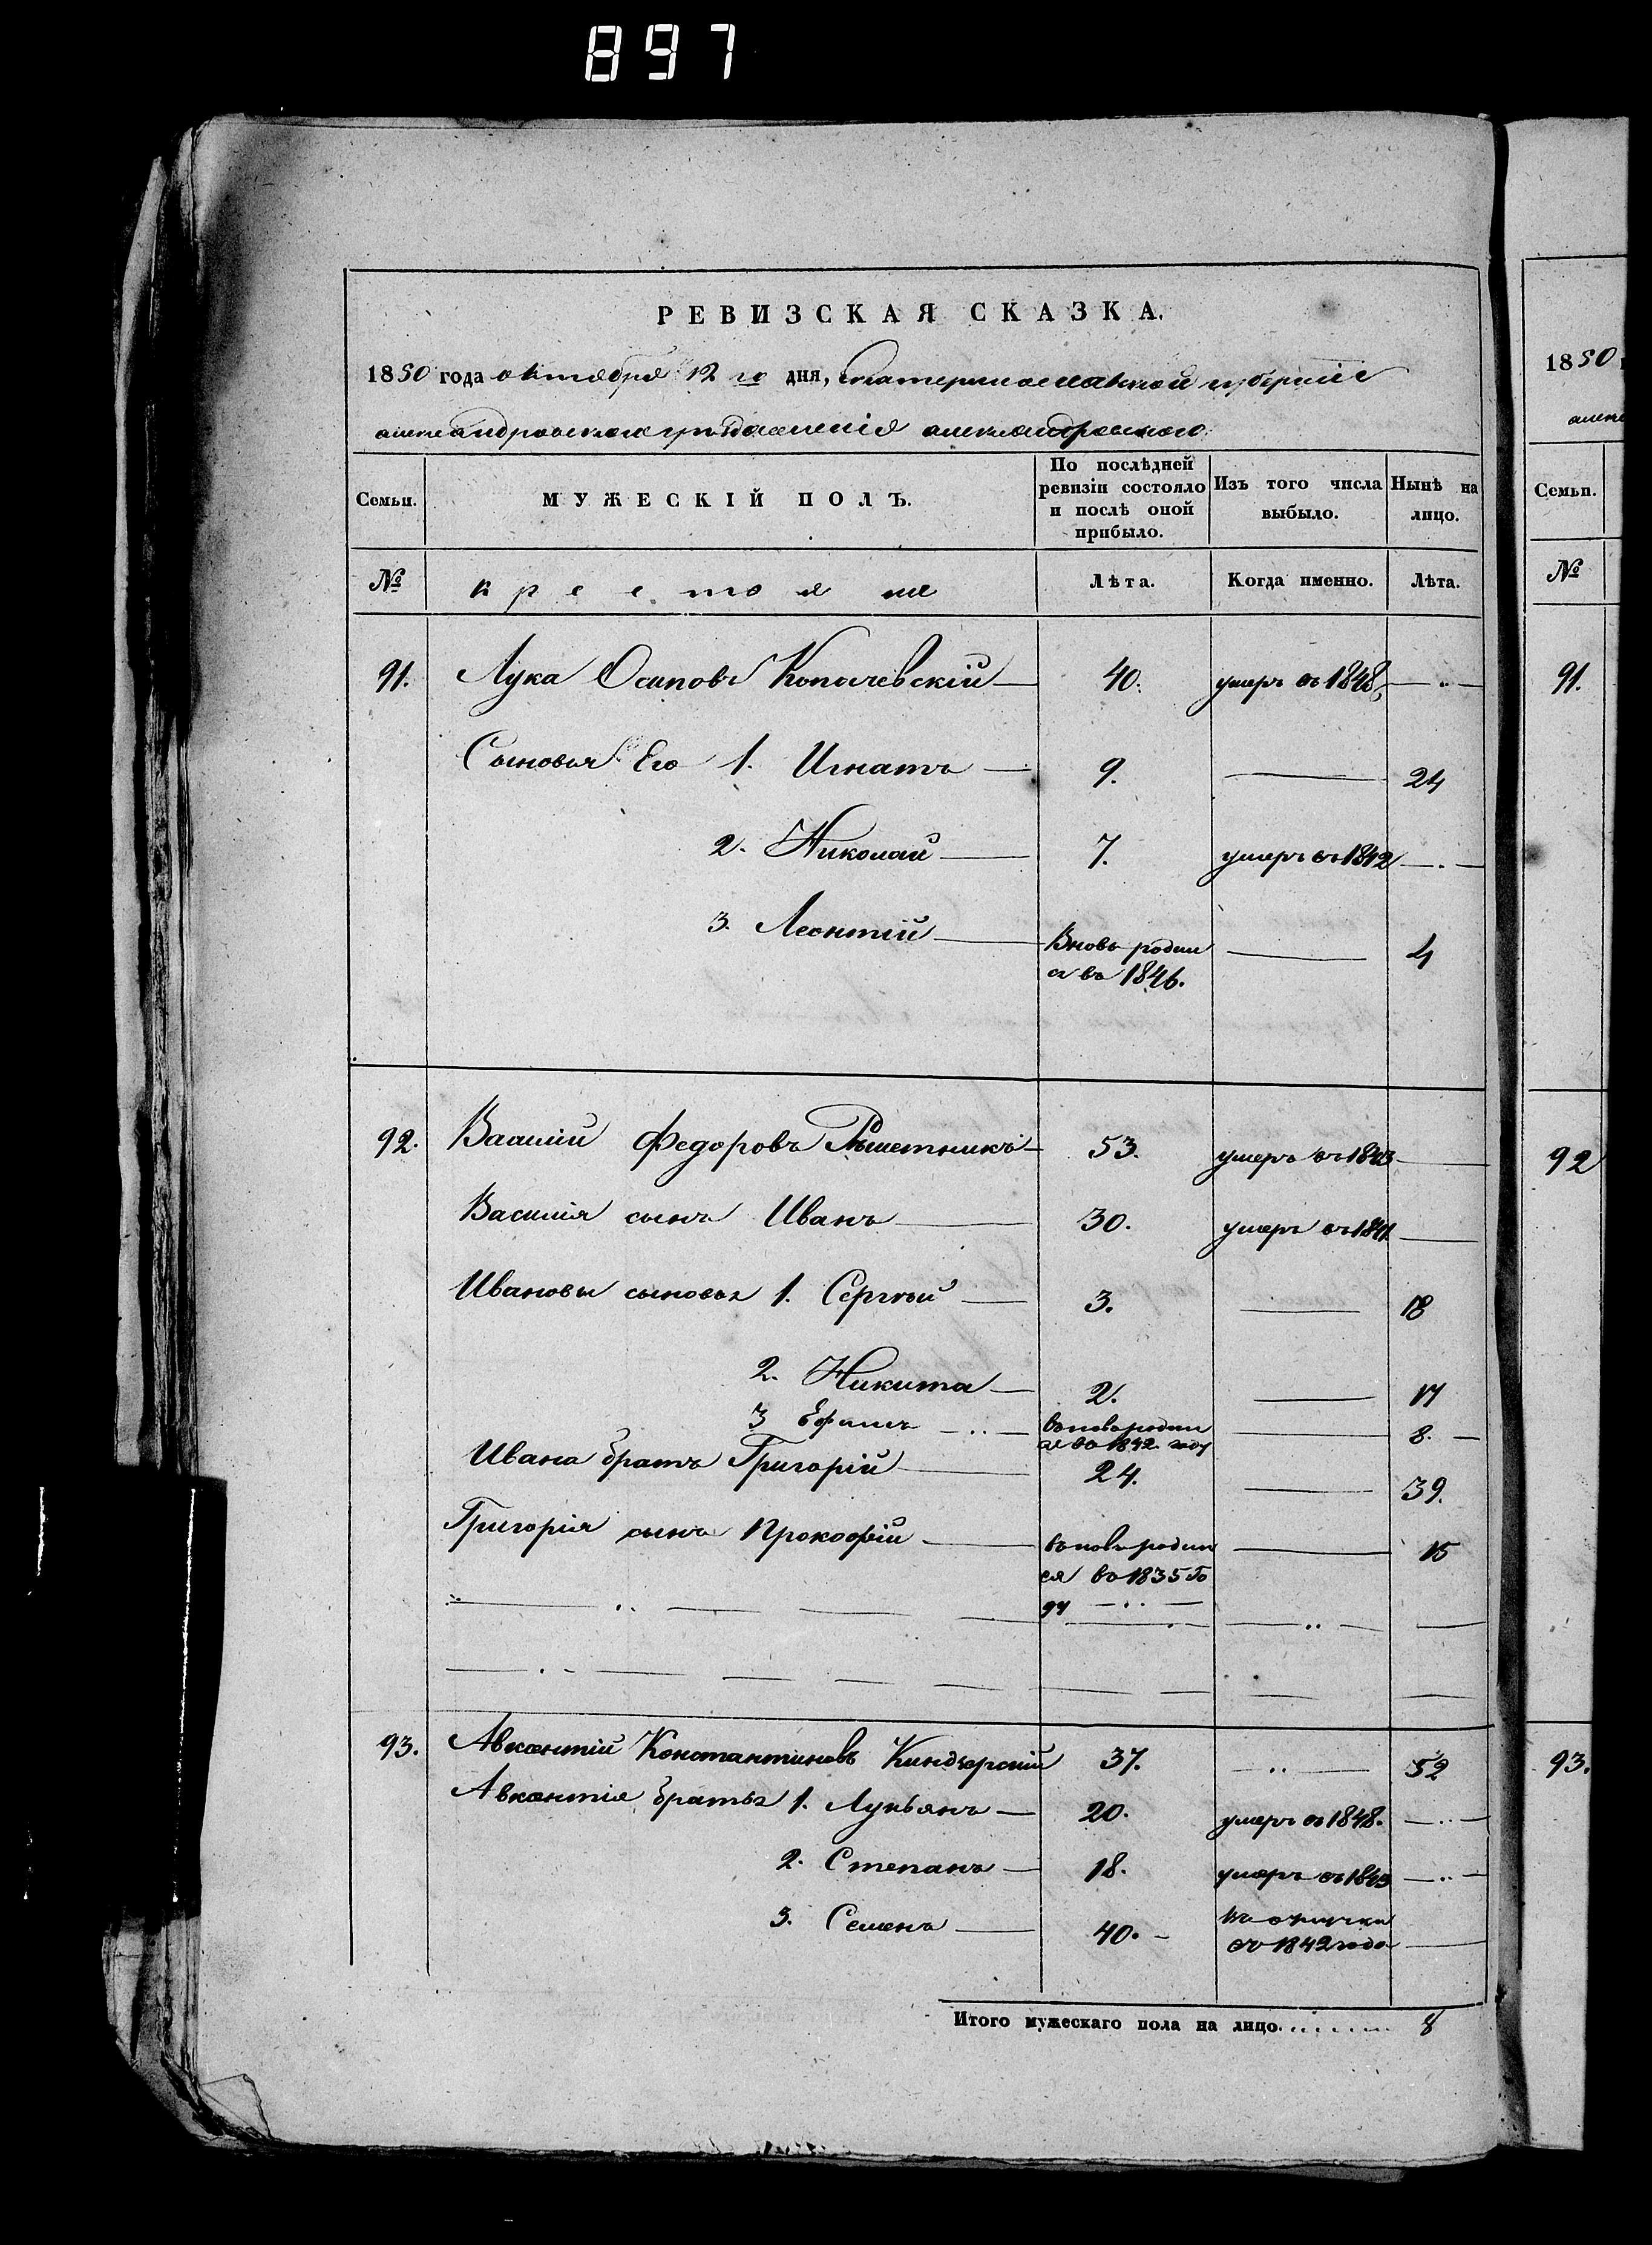 897
РЕВИЗСКАЯ СКАЗКА.
1850 года октября 12 го дня, екатеринославской губернии
александровского
1850
Семьи.
МУЖЕСКІЙ ПОЛЪ.
По послѣдней ревизіи состояло и послѣ оной прибыло.
Изъ того числа выбыло.
Нынѣ на лицо.
Семьи.
№
крестьяне
Лѣта.
Когда именно.
Лѣта.
№
91. Лука Осиповъ Копачевскій 40. умеръ въ 1848
91.
Сыновья Его 1. Игнатъ 9. 24
2. Николай 7. умеръ въ 1842
3. Леонтій Вновь родил 4
ся въ 1846.
92. Василий Федоровъ Рѣшетникъ 53. умеръ въ 1843
92
Василія сынъ Иванъ 30. умеръ въ 1841
Ивановы сыновья 1. Сергѣй 3. 18
2. Никита 2. 17
3 Ефимъ вновь родил 8.
ся въ 1842 году
Ивана братъ Григорій 24. 39.
Григорія сынъ Прокофій вновь родил 15
ся въ 1835 го
ду
93. Авксентій Константиновъ 37. 52
93.
Авксентія братья 1. Лукьянъ 20. умеръ въ 1848.
2. Степанъ 18. умеръ въ 1849
3. Семенъ 40.
1842 года
Итого мужескаго пола на лицо........ 8